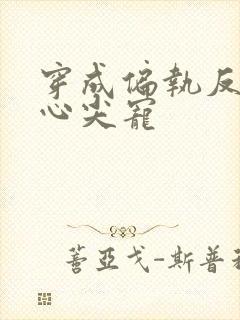 穿成偏執反
心尖寵
蓍亞戈-斯普